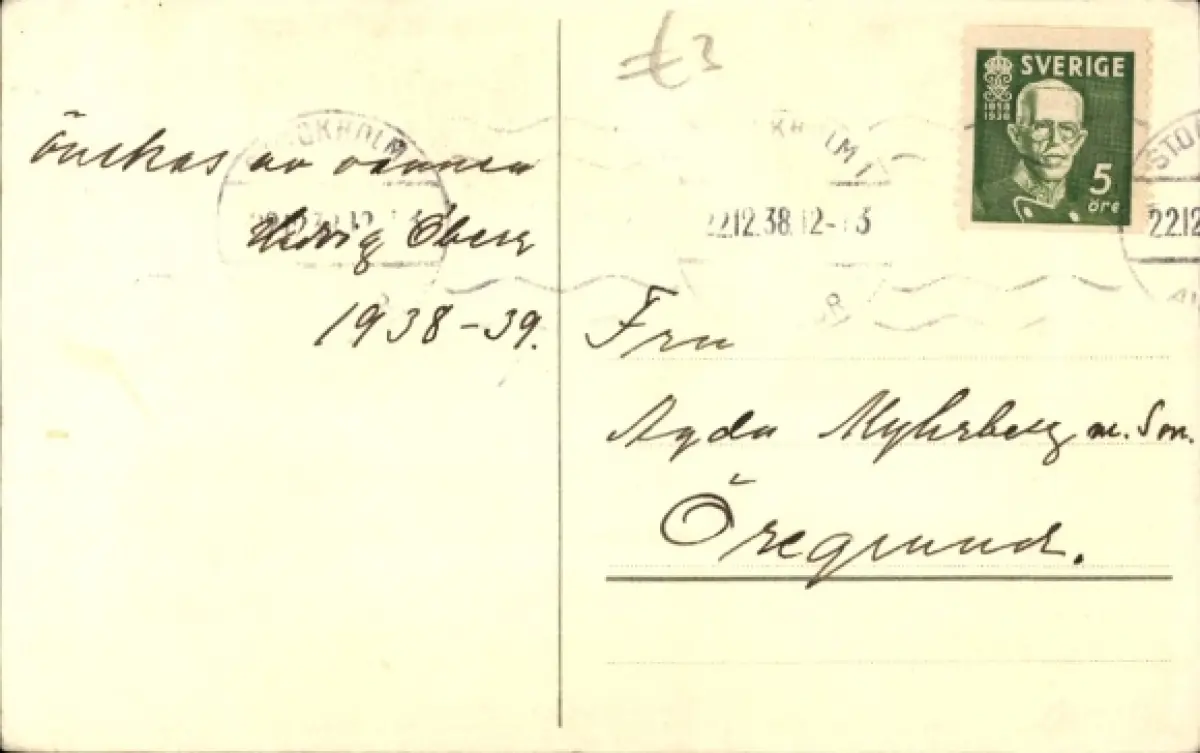 önskas av vännen
Hedvig Öberg
1938-39.
£3
SVERIGE
1858
1938
5
öre
STOCKHOLM
KHOLM 1
22.12.38.12-13
STO
22.12
Fru
Agda Myhrberg m. Son.
Öregrund.